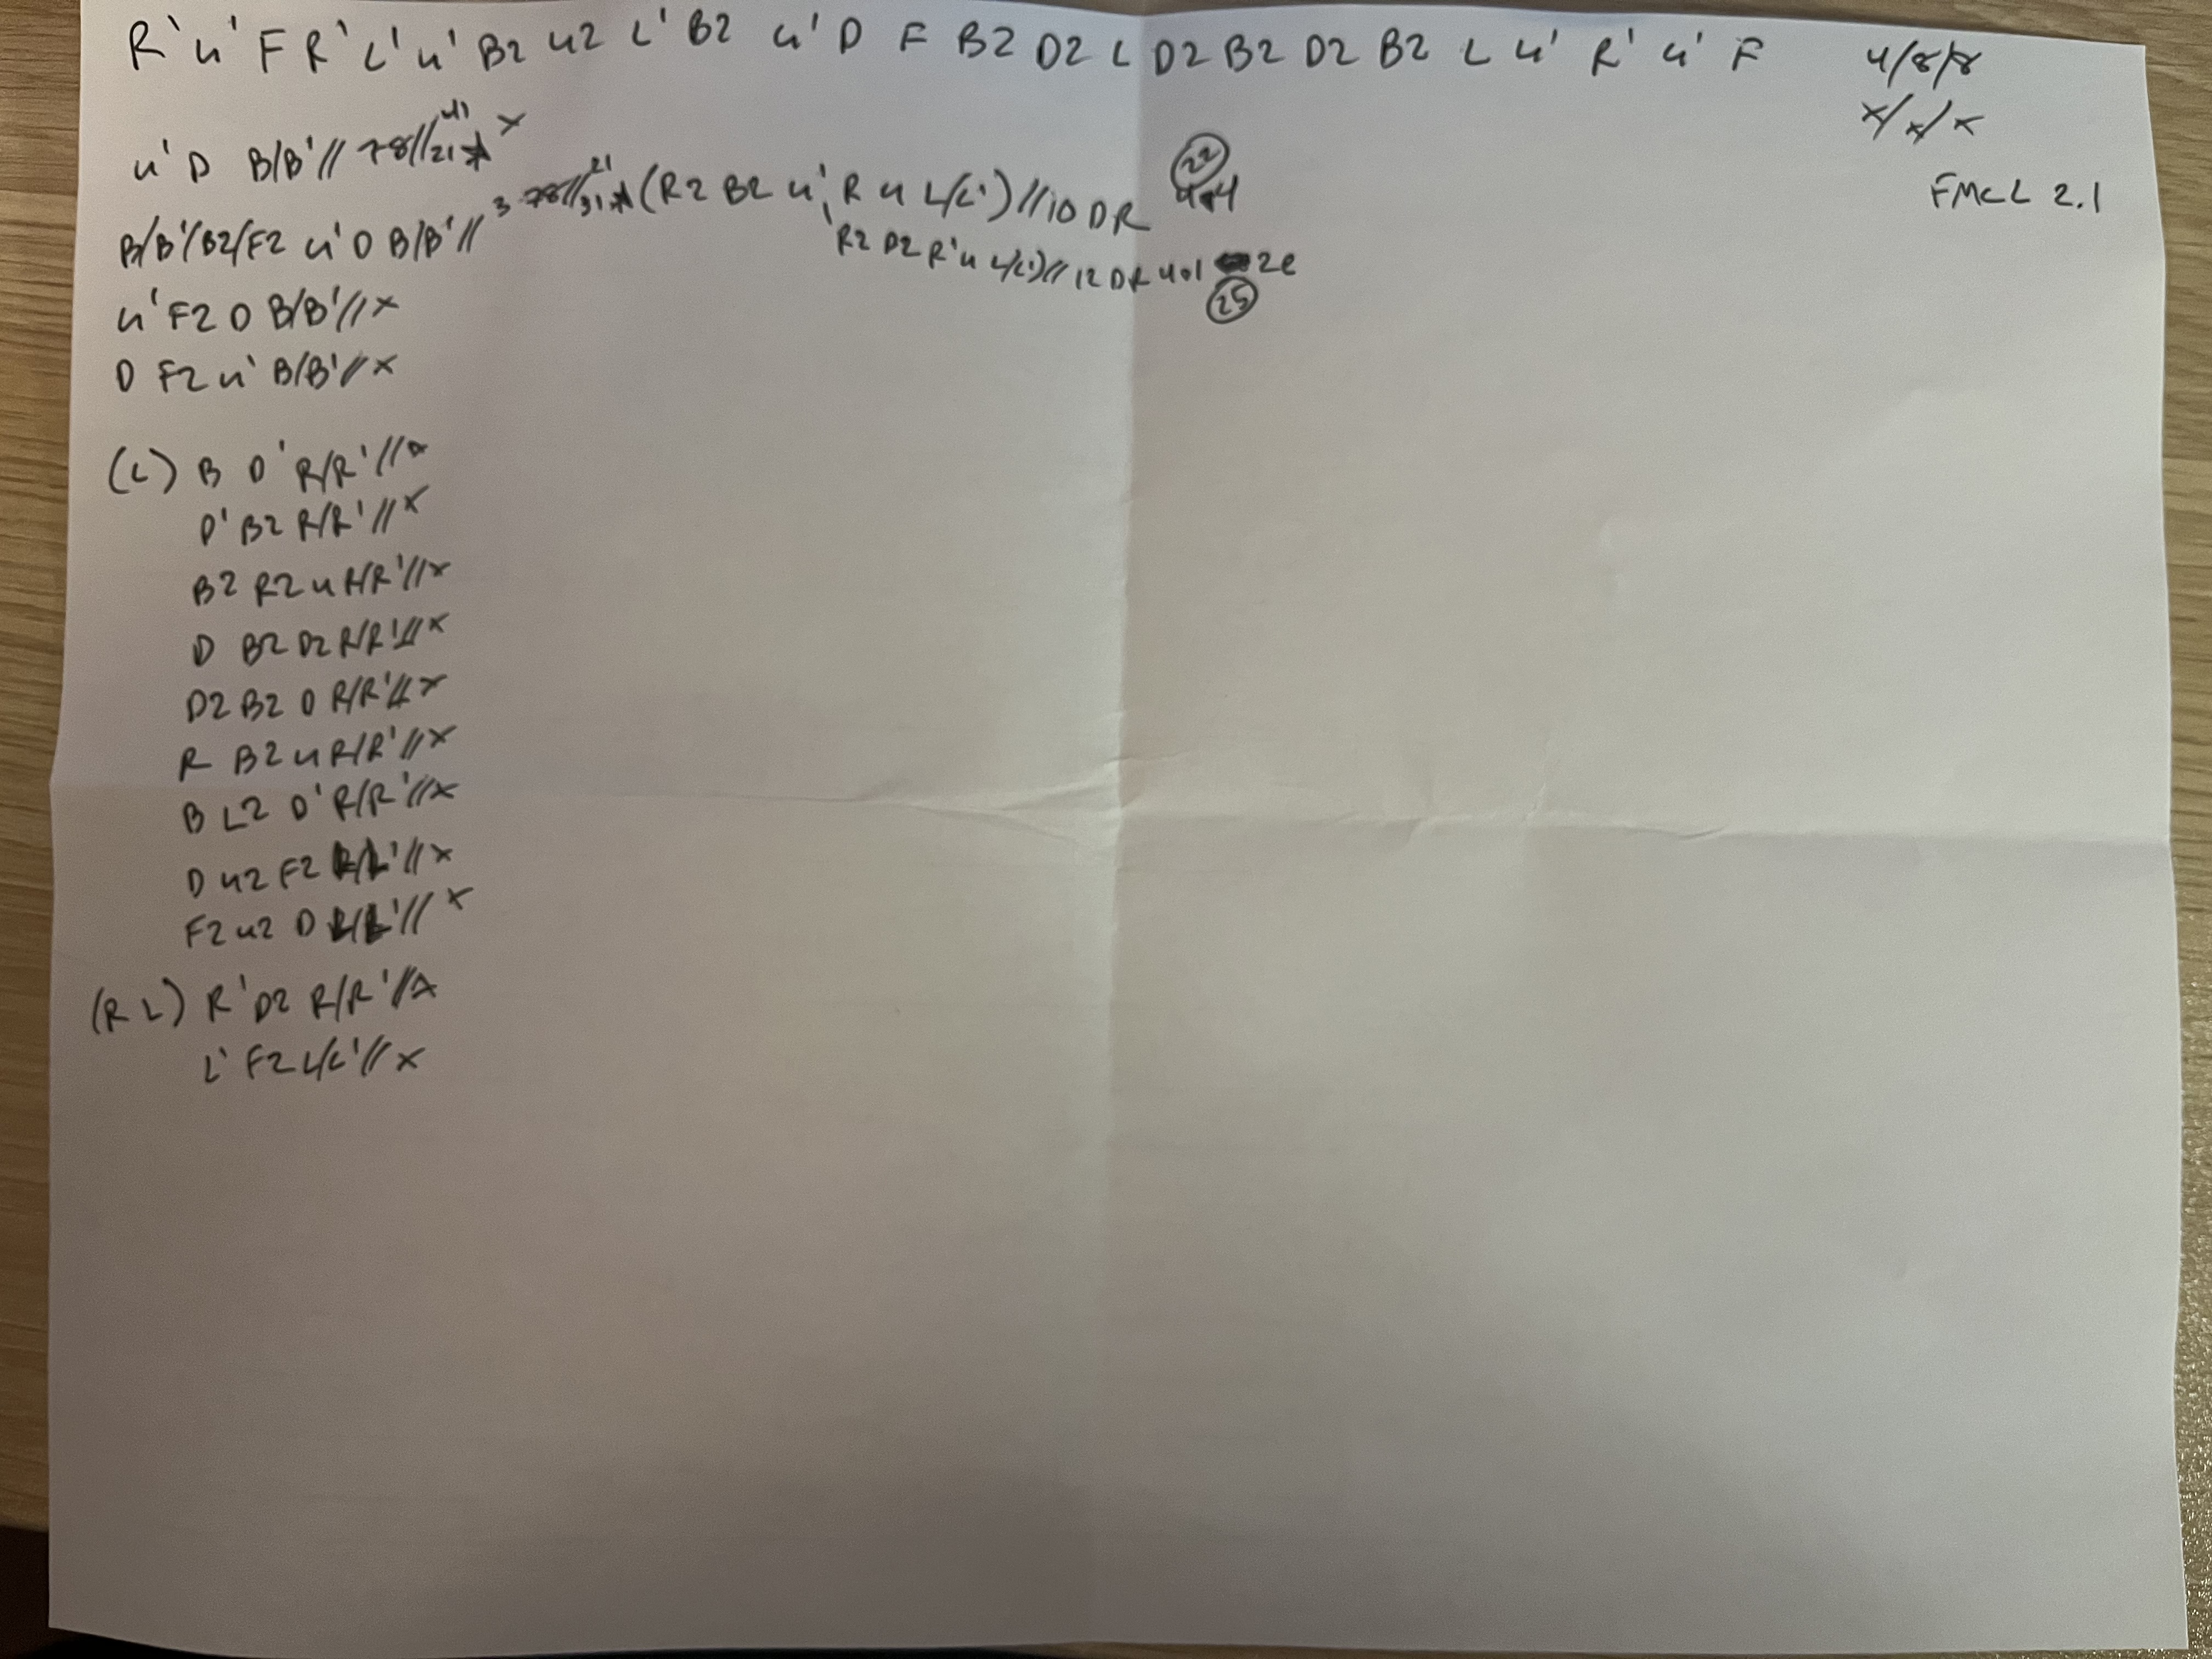 R' u' F R' L' u' B2 u2 L' B2 u' D F B2 D2 L D2 B2 D2 B2 L u' R' u' F 4/8/8
x/x/x
u' D B/B' // 78// 21 41 x
FMCL 2.1
B/B'/B2/F2 u' D B/B' // 3 78// 31 21 (R2 B2 u' R u L/L') //10 DR 4+4 22
R2 D2 R' u L/L') // 12 DR 4+1 2e
25
u' F2 D B/B' // x
D F2 u' B/B' // x
(L) B D' R/R' // A
D' B2 R/R' // x
B2 R2 u R/R' // x
D B2 D2 R/R' // x
D2 B2 D R/R' // x
R B2 u R/R' // x
B L2 D' R/R' // x
D u2 F2 L/L' // x
F2 u2 D L/L' // x
(R L) R' D2 R/R' // A
L' F2 L/L' // x